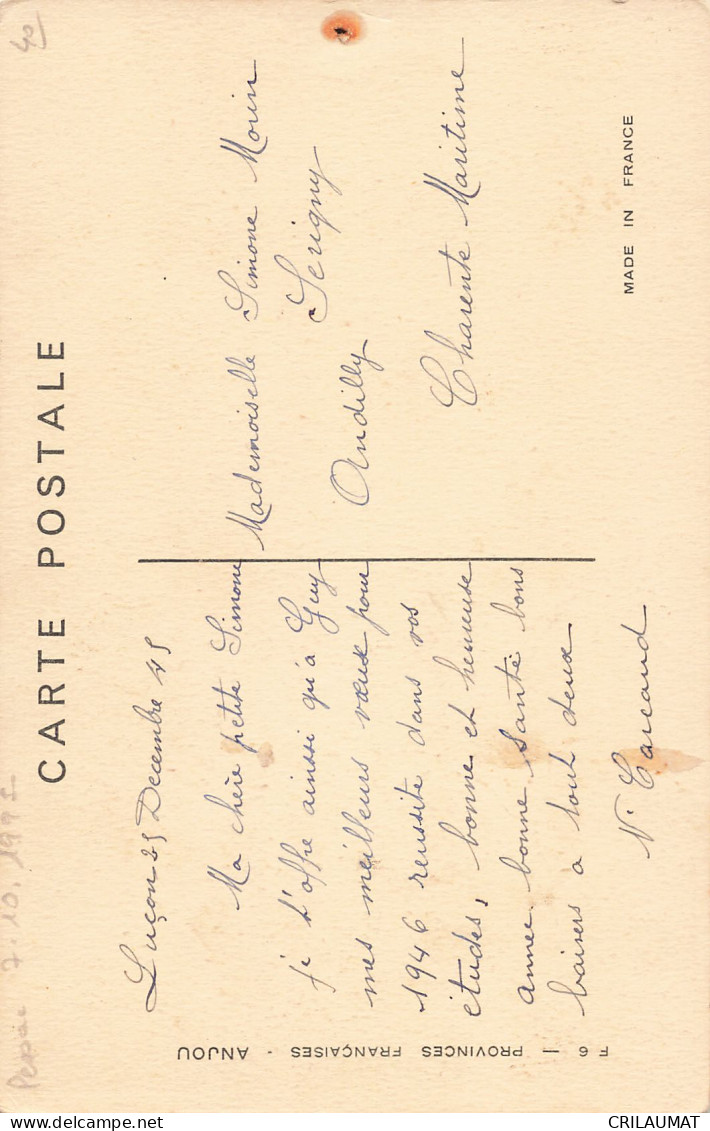 CARTE POSTALE
Luçon 25 Decembre 45
Ma chère petite Simone
je t'offre ainsi qu'à Guy
mes meilleurs vœux pour
1946 reussite dans vos
études, bonne et heureuse
année bonne santé bons
baisers à tout deux
N. Carcaud
Mademoiselle Simone Morin
Serigny
Andilly
Charente Maritime
MADE IN FRANCE
F 6 — PROVINCES FRANÇAISES - ANJOU
40
7.10.1991
CRILAUMAT